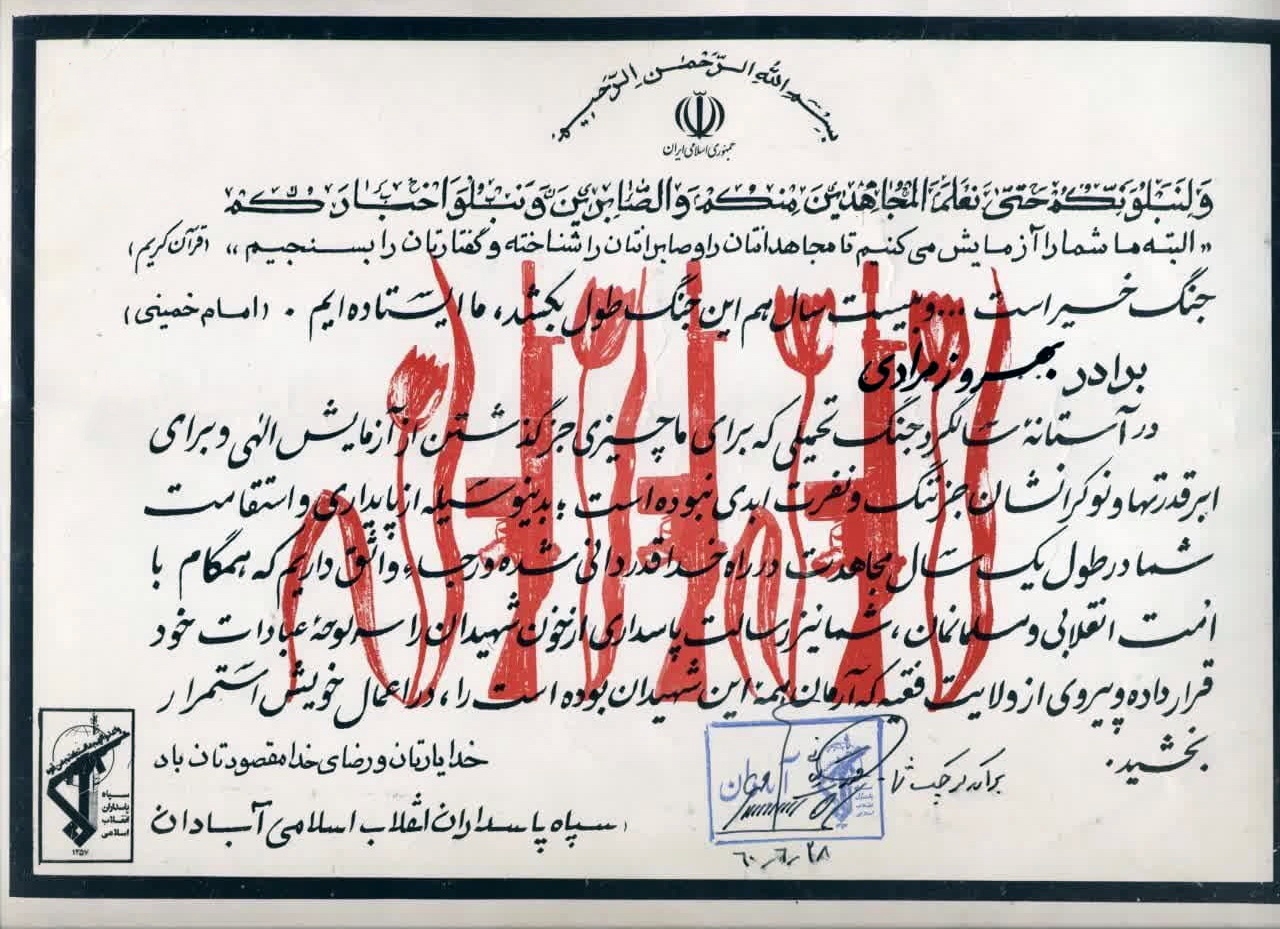 بسم الله الرحمن الرحیم
جمهوری اسلامی ایران
وَلَنَبلُوَنَّکُم حَتّی نَعلَمَ المُجاهِدینَ مِنکُم وَالصّابِرینَ وَنَبلُوَا اَخبارَکُم
«البته ما شما را آزمایش می‌کنیم تا مجاهدانتان را و صابرانتان را شناخته و گفتارتان را بسنجیم» (قرآن کریم)
جنگ خیر است ... و بیست سال هم این جنگ طول بکشد، ما ایستاده ایم . (امام خمینی)
برادر بهروز مرادی
در آستانهٔ سالگرد جنگ تحمیلی که برای ما چیزی جز گذشتن از آزمایش الهی و برای
ابرقدرتها و نوکرانشان جز ننگ و نفرت ابدی نبوده است؛ بدینوسیله از پایداری و استقامت
شما در طول یک سال مجاهدت در راه خدا قدردانی شده و رجاء واثق داریم که همگام با
امت انقلابی و مسلمانمان، شما نیز رسالت پاسداری از خون شهیدان را سرلوحهٔ عبادات خود
قرار داده و پیروی از ولایت فقیه که آرمان همهٔ این شهیدان بوده است را، در اعمال خویش استمرار
بخشید.
خدا یارتان و رضای خدا مقصودتان باد
سپاه پاسداران انقلاب اسلامی آبادان
سپاه
پاسداران
انقلاب
اسلامی
۱۳۵۷
آبادان
۶۰/۶/۲۸